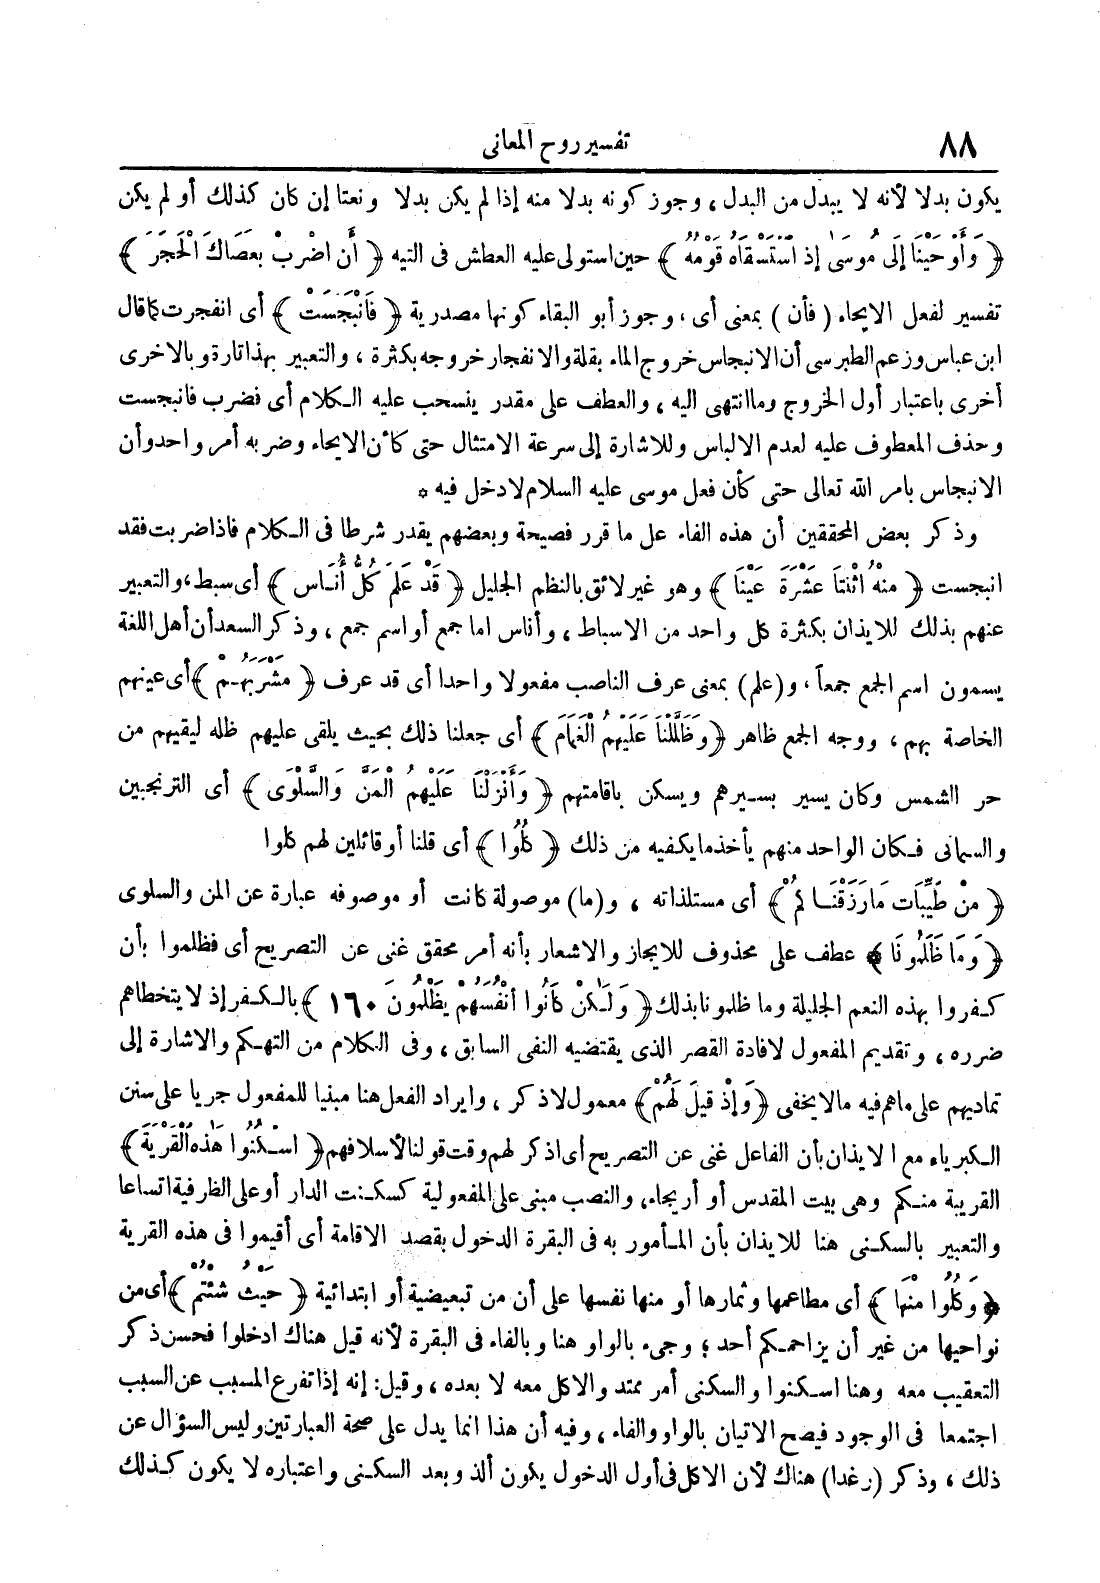 ٨٨
تفسير روح المعانى
يكون بدلا لأنه لا يبدل من البدل، وجوز كونه بدلا منه إذا لم يكن بدلا ونعتا إن كان كذلك أو لم يكن
﴿ وَأَوْحَيْنَا إِلَى مُوسَى إِذِ اسْتَسْقَاهُ قَوْمُهُ ﴾ حين استولى عليه العطش فى التيه ﴿ أَنِ اضْرِبْ بِعَصَاكَ الْحَجَرَ ﴾
تفسير لفعل الايحاء (فأن) بمعنى أى، وجوز أبو البقاء كونها مصدرية ﴿ فَانْبَجَسَتْ ﴾ أى انفجرت كما قال
ابن عباس وزعم الطبرسى أن الانبجاس خروج الماء بقلة والانفجار خروجه بكثرة، والتعبير بهذا تارة وبالاخرى
أخرى باعتبار أول الخروج وما انتهى اليه، والعطف على مقدر ينسحب عليه الكلام أى فضرب فانبجست
وحذف المعطوف عليه لعدم الالباس وللاشارة إلى سرعة الامتثال حتى كأن الايحاء وضربه أمر واحد وأن
الانبجاس بامر الله تعالى حتى كأن فعل موسى عليه السلام لا دخل فيه *
وذكر بعض المحققين أن هذه الفاء على ما قرر فصيحة وبعضهم يقدر شرطا فى الكلام فاذا ضربت فقد
انبجست ﴿ مِنْهُ اثْنَتَا عَشْرَةَ عَيْنًا ﴾ وهو غير لائق بالنظم الجليل ﴿ قَدْ عَلِمَ كُلُّ أُنَاسٍ ﴾ أى سبط، والتعبير
عنهم بذلك للايذان بكثرة كل واحد من الاسباط، وأناس اما جمع أو اسم جمع، وذكر السعد أن أهل اللغة
يسمون اسم الجمع جمعاً، و(علم) بمعنى عرف الناصب مفعولا واحدا أى قد عرف ﴿ مَشْرَبَهُمْ ﴾ أى عينهم
الخاصة بهم، ووجه الجمع ظاهر ﴿ وَظَلَّلْنَا عَلَيْهِمُ الْغَمَامَ ﴾ أى جعلنا ذلك بحيث يلقى عليهم ظله ليقيهم من
حر الشمس وكان يسير بسيرهم ويسكن باقامتهم ﴿ وَأَنْزَلْنَا عَلَيْهِمُ الْمَنَّ وَالسَّلْوَى ﴾ أى الترنجبين
والسمانى فكان الواحد منهم يأخذ ما يكفيه من ذلك ﴿ كُلُوا ﴾ أى قلنا أو قائلين لهم كلوا
﴿ مِنْ طَيِّبَاتِ مَا رَزَقْنَاكُمْ ﴾ أى مستلذاته، و(ما) موصولة كانت أو موصوفه عبارة عن المن والسلوى
﴿ وَمَا ظَلَمُونَا ﴾ عطف على محذوف للايجاز والاشعار بأنه أمر محقق غنى عن التصريح أى فظلموا بأن
كفروا بهذه النعم الجليلة وما ظلمونا بذلك ﴿ وَلَكِنْ كَانُوا أَنْفُسَهُمْ يَظْلِمُونَ ١٦٠ ﴾ بالكفر إذ لا يتخطاهم
ضرره، وتقديم المفعول لافادة القصر الذى يقتضيه النفى السابق، وفى الكلام من التهكم والاشارة إلى
تماديهم على ما هم فيه ما لا يخفى ﴿ وَإِذْ قِيلَ لَهُمُ ﴾ معمول لاذكر، وايراد الفعل هنا مبنيا للمفعول جريا على سنن
الكبرياء مع الايذان بأن الفاعل غنى عن التصريح أى اذكر لهم وقت قولنا لأسلافهم ﴿ اسْكُنُوا هَذِهِ الْقَرْيَةَ ﴾
القريبة منكم وهى بيت المقدس أو أريحاء، والنصب مبنى على المفعولية كسكنت الدار أو على الظرفية اتساعا
والتعبير بالسكنى هنا للايذان بأن المأمور به فى البقرة الدخول بقصد الاقامة أى أقيموا فى هذه القرية
﴿ وَكُلُوا مِنْهَا ﴾ أى مطاعمها وثمارها أو منها نفسها على أن من تبعيضية أو ابتدائية ﴿ حَيْثُ شِئْتُمْ ﴾ أى من
نواحيها من غير أن يزاحمكم أحد؛ وجىء بالواو هنا وبالفاء فى البقرة لأنه قيل هناك ادخلوا فحسن ذكر
التعقيب معه وهنا اسكنوا والسكنى أمر ممتد والاكل معه لا بعده، وقيل: إنه إذا تفرع المسبب عن السبب
اجتمعا فى الوجود فيصح الاتيان بالواو والفاء، وفيه أن هذا انما يدل على صحة العبارتين وليس السؤال عن
ذلك، وذكر (رغدا) هناك لأن الاكل فى أول الدخول يكون ألذ وبعد السكنى واعتباره لا يكون كذلك